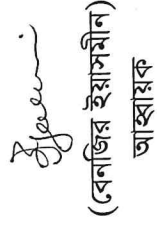 (বেনজির ইয়াসমীন)
আহ্বায়ক